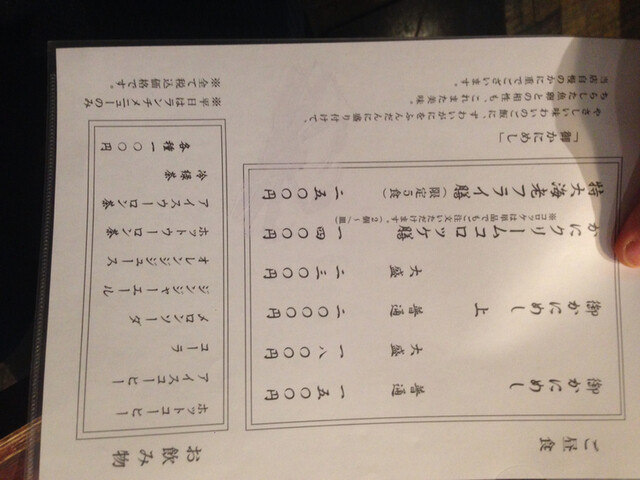 ご昼食
御かにめし 普通 一五〇〇円
大盛 一八〇〇円
御かにめし 上 普通 二〇〇〇円
大盛 二三〇〇円
かにクリームコロッケ膳 一四〇〇円
※コロッケは単品でもご注文いただけます。
特大海老フライ膳(限定5食) 二五〇〇円
「御かにめし」
やさしい味わいのご飯に、ずわいがにをふんだんに盛り付けて、
ちらした魚卵との相性も、これまた美味。
当店自慢のかに重でございます。
お飲み物
ホットコーヒー
アイスコーヒー
コーラ
メロンソーダ
ジンジャーエール
オレンジジュース
ホットウーロン茶
アイスウーロン茶
冷緑茶
各種一〇〇円
※平日はランチメニューのみ
※全て税込価格です。